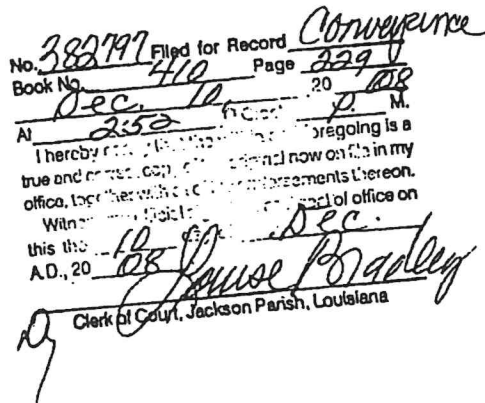 No. 382797 Filed for Record Conveyance
Book No. 410 Page 229
Dec. 10 20 08
At 2:52 P. M.
I hereby foregoing is a
true and now on file in my
office, together with endorsements thereon.
of office on
this the 10 Dec.
A.D., 20 08
Louise Bradley
Clerk of Court, Jackson Parish, Louisiana